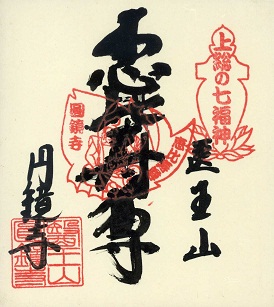 上総の七福神
医王山
恵比寿尊
圓鏡寺
円鏡寺